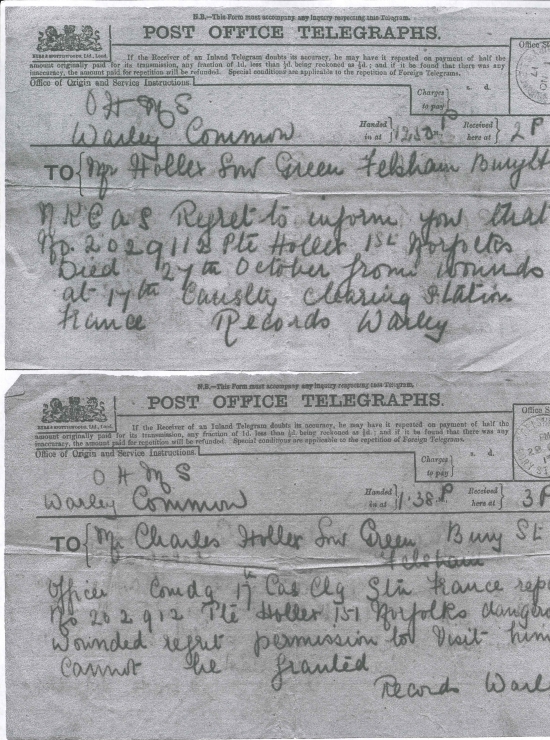 N.B.—This Form must accompany any inquiry respecting this Telegram.
POST OFFICE TELEGRAPHS.
If the Receiver of an Inland Telegram doubts its accuracy, he may have it repeated on payment of half the
amount originally paid for its transmission, any fraction of 1d. less than ½d. being reckoned as ½d.; and if it be found that there was any
inaccuracy, the amount paid for repetition will be refunded. Special conditions are applicable to the repetition of Foreign Telegrams.
Office of Origin and Service Instructions.
Office S
Charges to pay
s. d.
O H M S
Warley Common
Handed in at
Received here at
2 P
TO
Mr Holler Green Felsham Bury
Regret to inform you that
No. Pte Holler 1st Norfolks
Died 27th October from wounds
at 17th Clearing Station
France Records Warley
N.B.—This Form must accompany any inquiry respecting this Telegram.
POST OFFICE TELEGRAPHS.
If the Receiver of an Inland Telegram doubts its accuracy, he may have it repeated on payment of half the
amount originally paid for its transmission, any fraction of 1d. less than ½d. being reckoned as ½d.; and if it be found that there was any
inaccuracy, the amount paid for repetition will be refunded. Special conditions are applicable to the repetition of Foreign Telegrams.
Office of Origin and Service Instructions.
Office S
Charges to pay
s. d.
O H M S
Warley Common
Handed in at
1.38 P
Received here at
3 P
TO
Mr Charles Holler Green Bury St
Felsham
Officer Comdg 17th Cas Clg Stn France rep
No 202912 Pte Holler 1st Norfolks danger
Wounded regret permission to Visit him
Cannot be granted
Records Warl